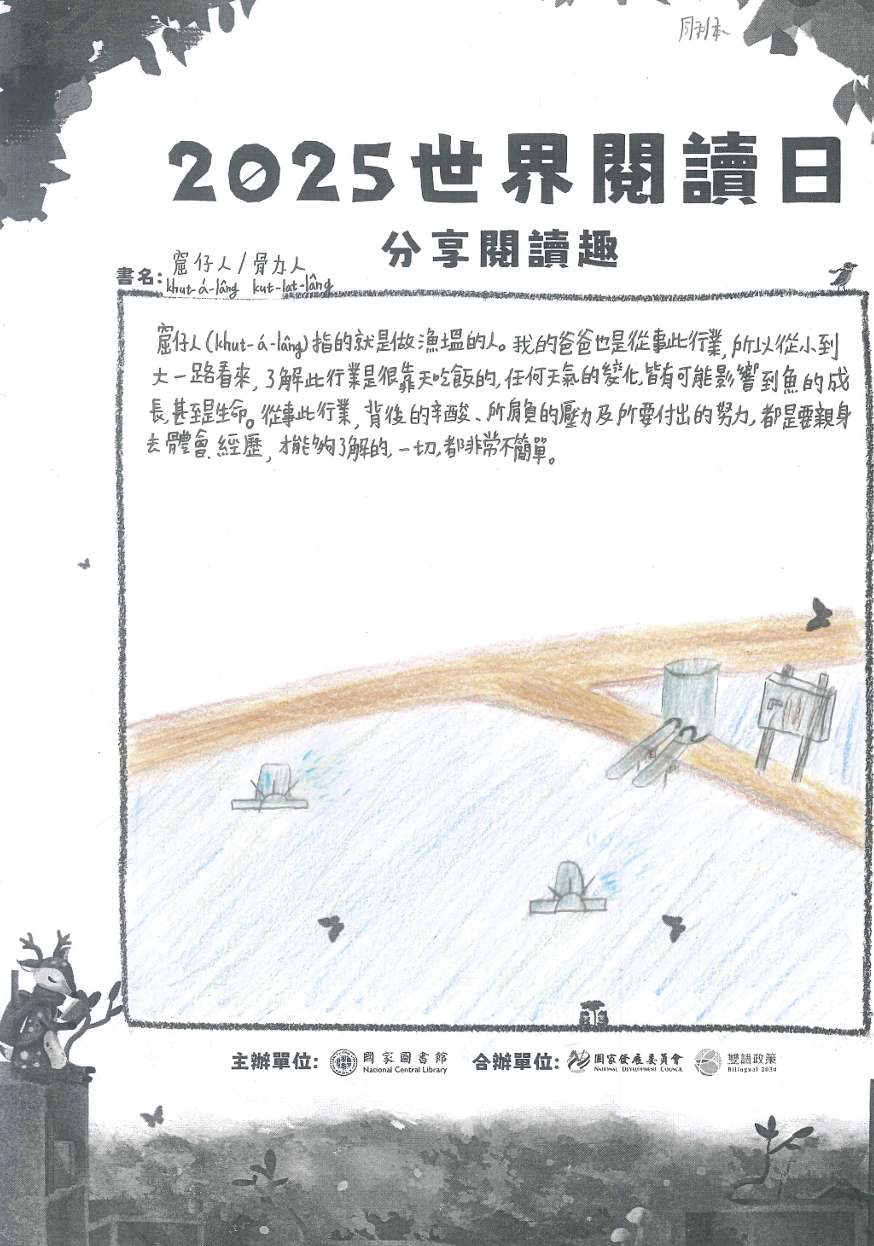 月刊本
2025世界閱讀日
分享閱讀趣
書名: 窟仔人/骨力人
khut-á-lâng kut-lat-lâng
窟仔人(khut-á-lâng)指的就是做漁塭的人。我的爸爸也是從事此行業,所以從小到
大一路看來,了解此行業是很靠天吃飯的,任何天氣的變化,皆有可能影響到魚的成
長,甚至是生命。從事此行業,背後的辛酸、所肩負的壓力及所要付出的努力,都是要親身
去體會、經歷,才能夠了解的,一切,都非常不簡單。
主辦單位: 國家圖書館 National Central Library 合辦單位: 國家發展委員會 National Development Council 雙語政策 Bilingual 2030